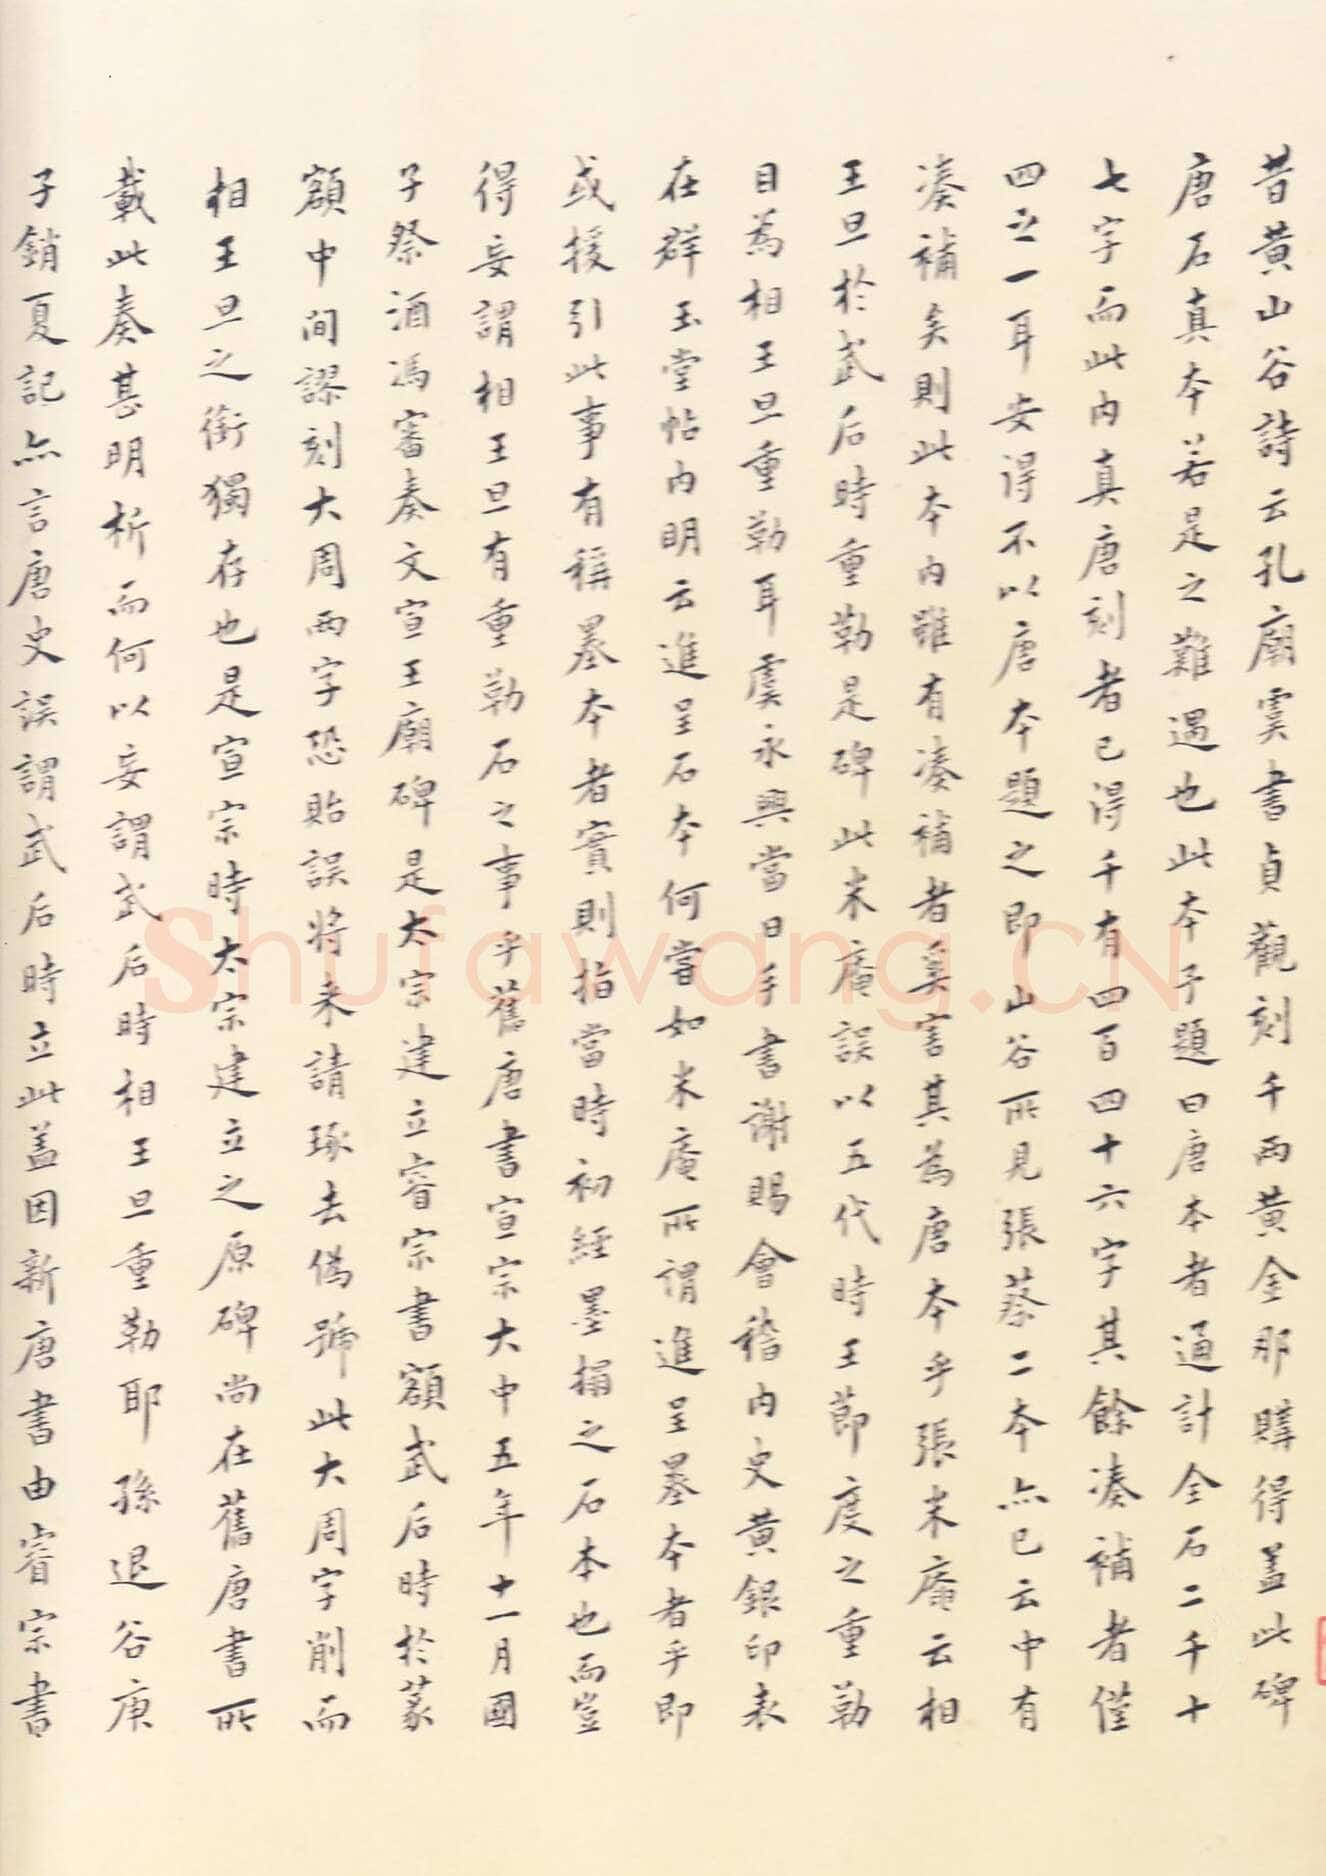 昔黄山谷詩云孔廟虞書貞觀刻千兩黄金那購得盖此碑
唐石真本若是之難遇也此本予題曰唐本者通計全石二千十
七字而此内真唐刻者已得千有四百四十六字其餘湊補者僅
四之一耳安得不以唐本題之即山谷所見張蔡二本亦已云中有
湊補矣則此本内雖有湊補者奚害其為唐本乎張米庵云相
王旦於武后時重勒是碑此米庵誤以五代時王節度之重勒
目為相王旦重勒耳虞永興當日手書謝賜會稽内史黄銀印表
在群玉堂帖内明云進呈石本何嘗如米庵所謂進呈墨本者乎即
或援引此事有稱墨本者實則指當時初經墨搨之石本也而豈
得妄謂相王旦有重勒石之事乎舊唐書宣宗大中五年十一月國
子祭酒馮審奏文宣王廟碑是太宗建立睿宗書額武后時於篆
額中間謬刻大周兩字恐貽誤將来請琢去偽號此大周字削而
相王旦之銜獨存也是宣宗時太宗建立之原碑尚在舊唐書所
載此奏甚明析而何以妄謂武后時相王旦重勒耶孫退谷庚
子銷夏記亦言唐史誤謂武后時立此盖因新唐書由睿宗書
Shufawang.CN